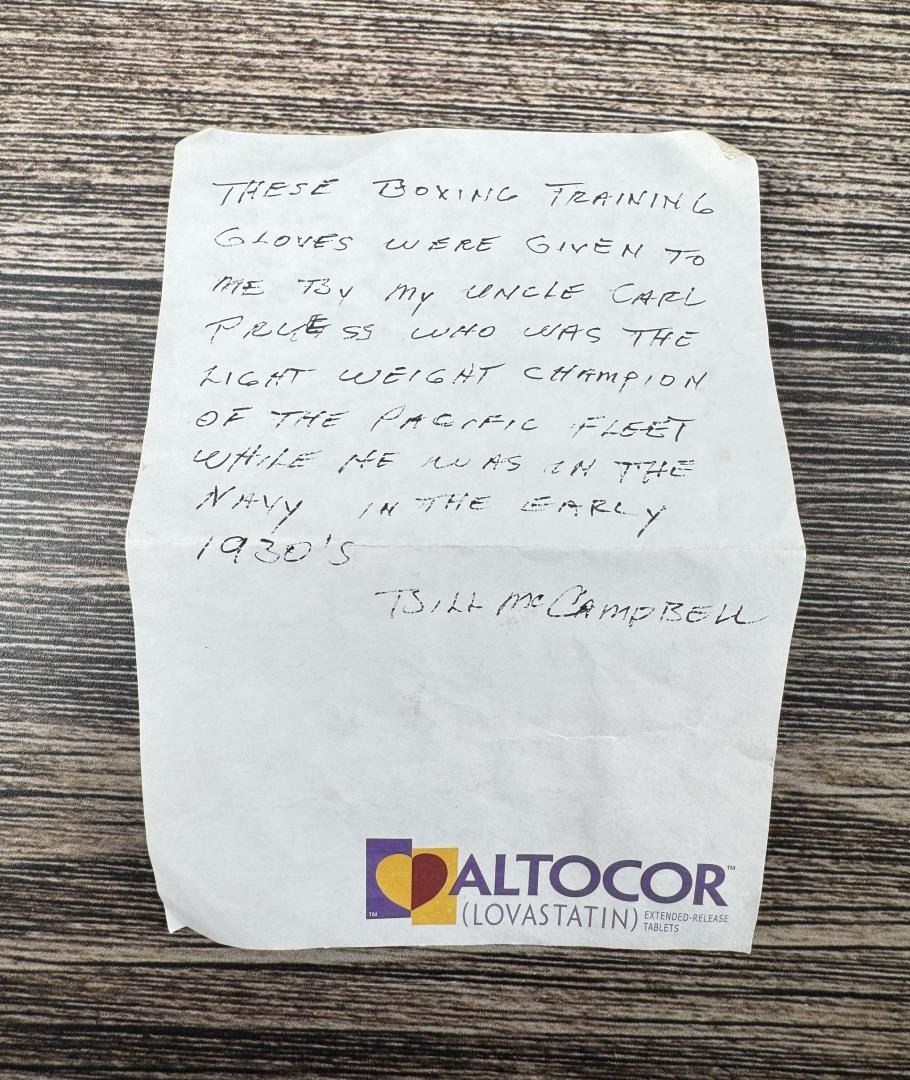 THESE BOXING TRAINING
GLOVES WERE GIVEN TO
ME BY MY UNCLE CARL
PRUESS WHO WAS THE
LIGHT WEIGHT CHAMPION
OF THE PACIFIC FLEET
WHILE HE WAS IN THE
NAVY IN THE EARLY
1930'S
BILL McCAMPBELL
ALTOCOR™
(LOVASTATIN) EXTENDED-RELEASE
TABLETS
TM